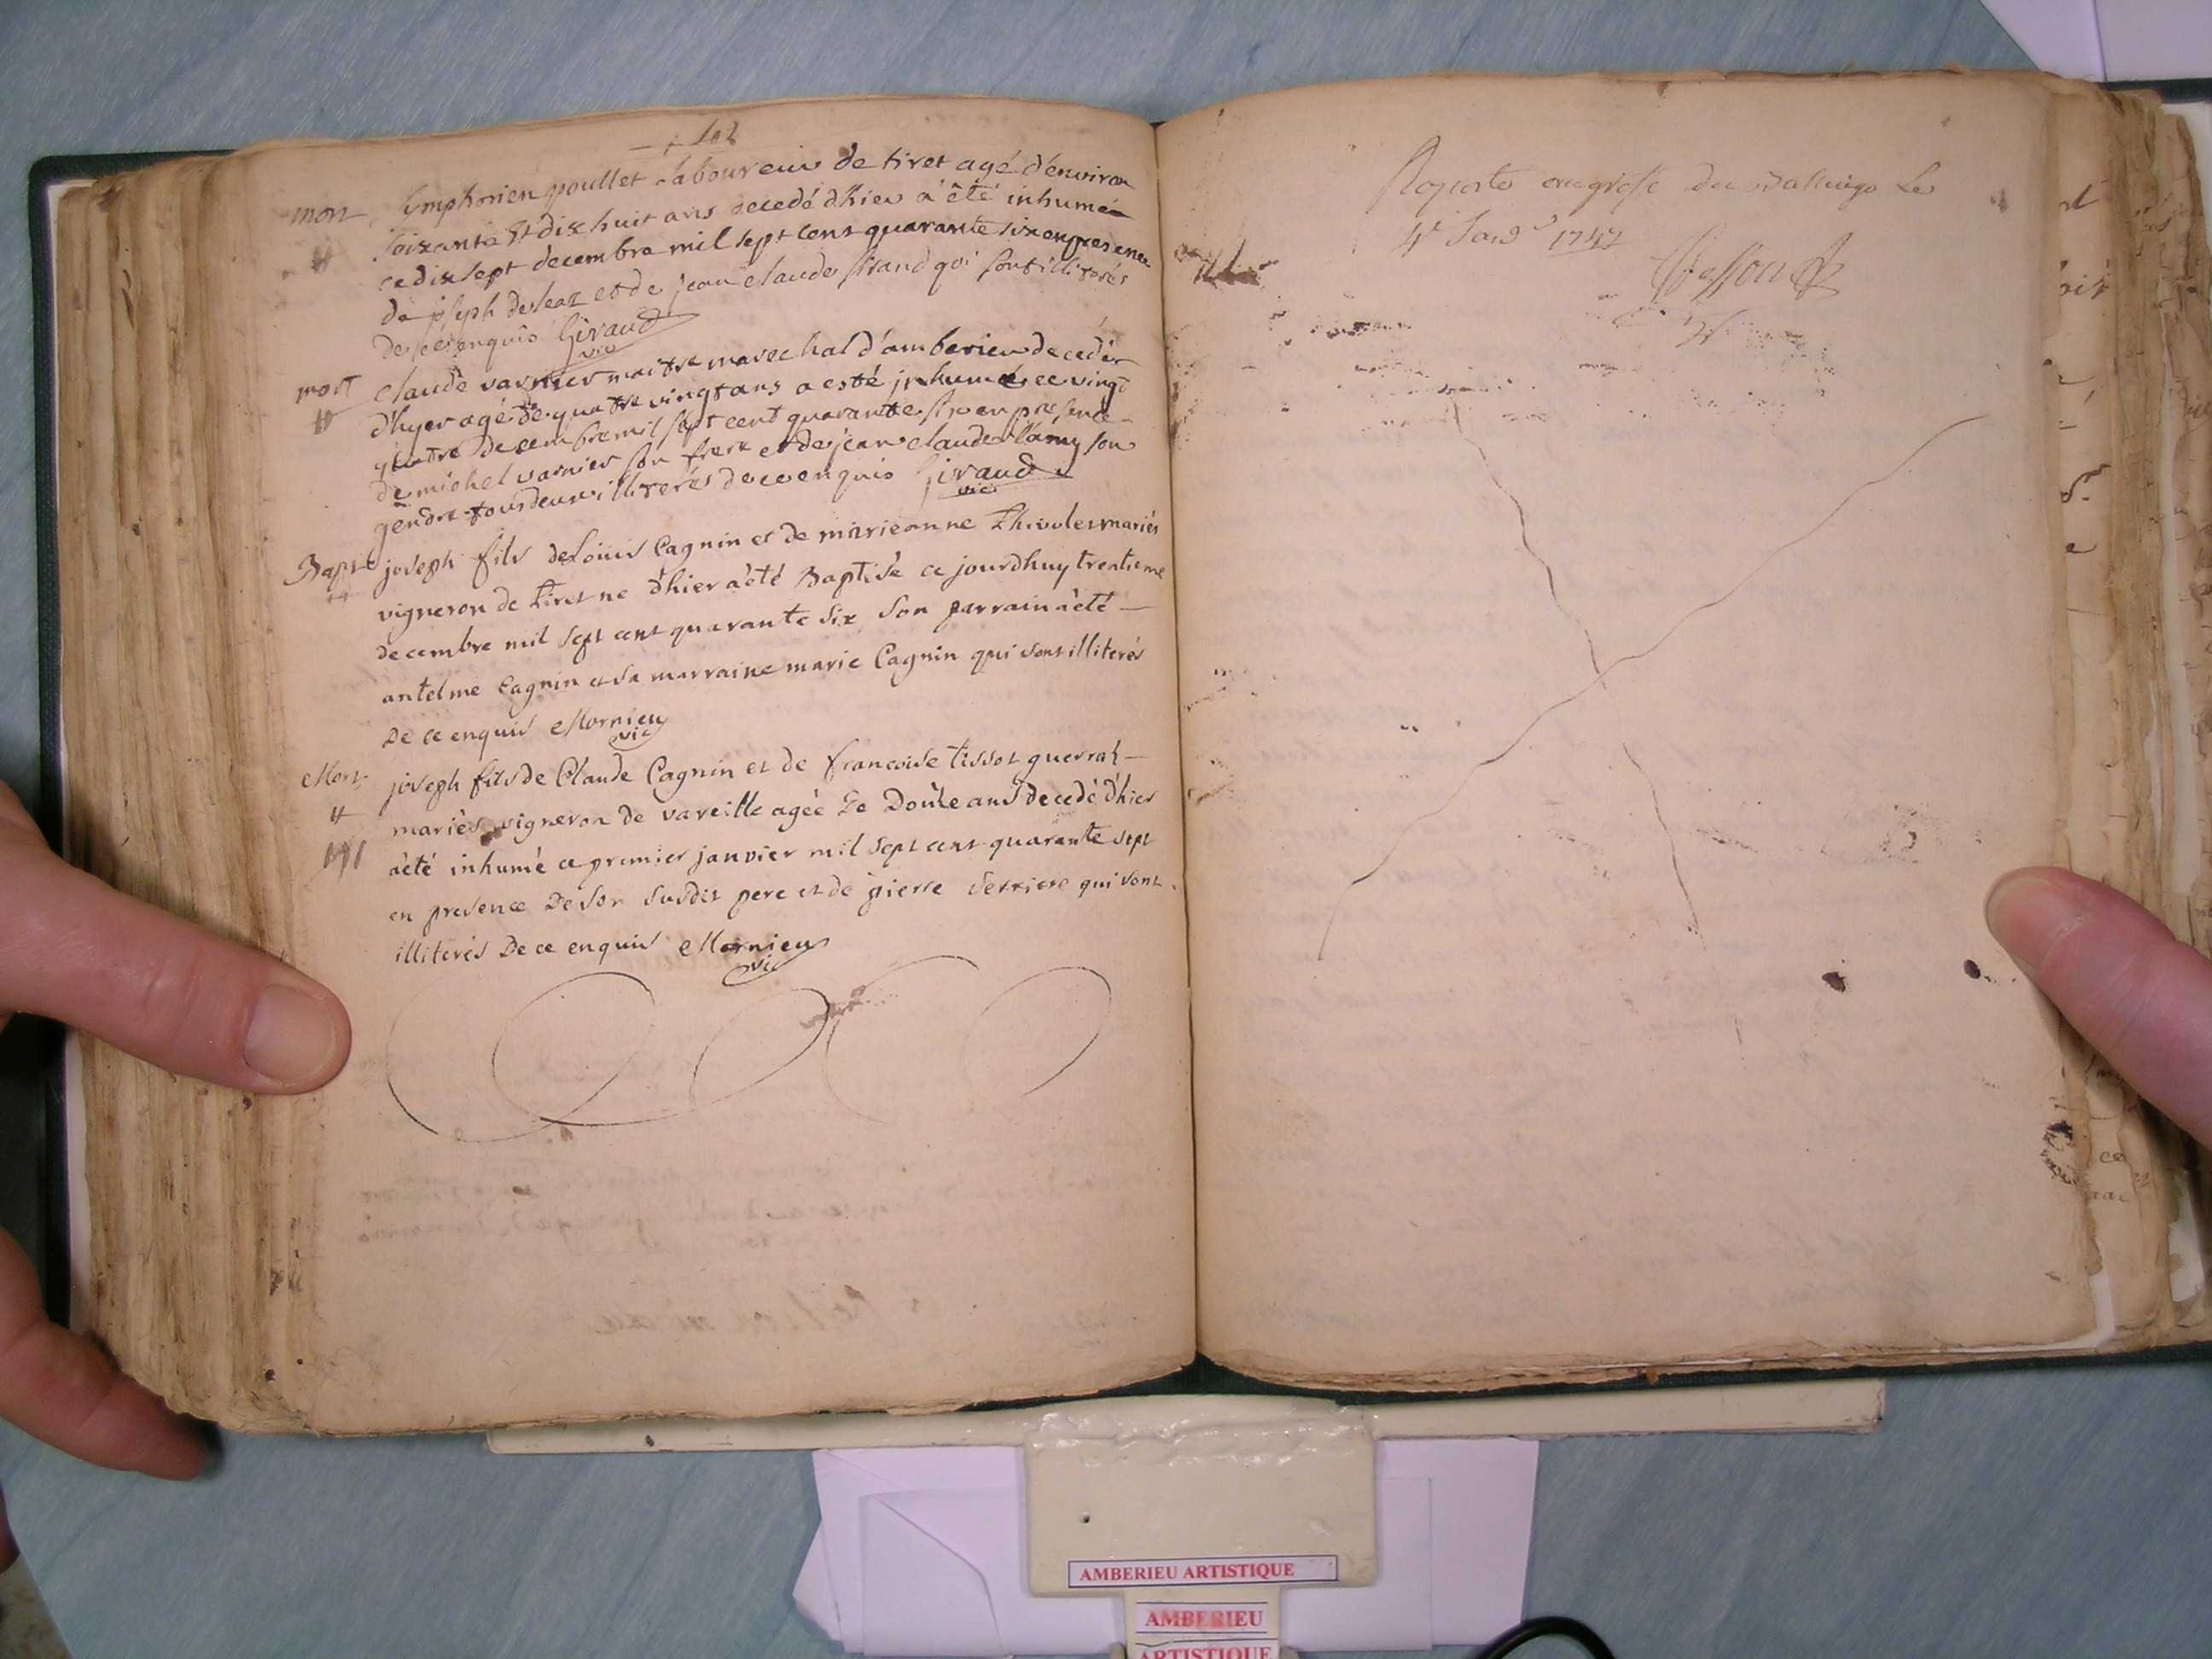 102
mort Symphorien poullet Laboureur de tiret agé d'environ
soixante Et dix huit ans decedé d'hier a été inhumé
ce dix sept decembre mil sept cent quarante six en presence
de joseph et de jean claude qui sont illiterés
de ce enquis Giraud
vic
mort claude varnier maitre marechal d'amberieu decedér
d'hyer agé de quatre vingt ans a esté jnhumé ce vingt
quatre decembre mil sept cent quarante six en presence
de michel varnier son frere et de jean claude lamy son
gendre tous deux illiterés de ce enquis Giraud
vic
Bapt joseph fils de Louis Cagnin et de marieanne Thevolet mariés
vigneron de tiret ne d'hier a èté Baptisé ce jourdhuy trentieme
decembre mil sept cent quarante six Son parrain a èté
antelme Cagnin et sa marraine marie Cagnin qui sont illiterés
De ce enquis Mornieu
vic
Mort joseph fils de Claude Cagnin et de francoise tissot guerraz
mariés vigneron de vareille agée De Douze ans decedé d'hier
a èté inhumé ce premier janvier mil sept cent quarante sept
en presence De Son Susdit pere et de pierre qui sont
illiterés De ce enquis Mornieu
vic
au greffe du Le
4e Janr 1747
AMBERIEU ARTISTIQUE
AMBERIEU
ARTISTIQUE